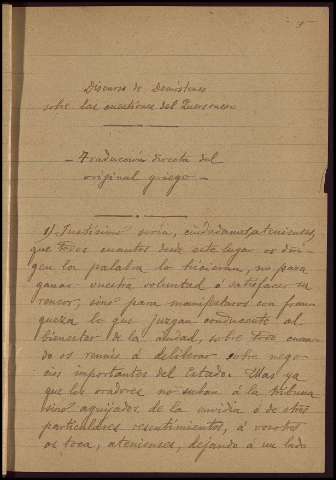 Discurso de Demóstenes
sobre las cuestiones del Quersoneso
- Traducción directa del
original griego -
1). Justísimo sería, ciudadanos atenienses,
que todos cuantos desde este lugar os diri-
gen la palabra lo hicieran, no para
ganar vuestra voluntad ó satisfacer su
rencor, sino para manifestaros con fran-
queza lo que juzgan conducente al
bienestar de la ciudad, sobre todo cuan-
do os reunís á deliberar sobre nego-
cios importantes del Estado. Mas ya
que los oradores no suban á la tribuna
sino aguijados de la envidia ó de otros
particulares resentimientos, á vosotros
os toca, atenienses, dejando á un lado